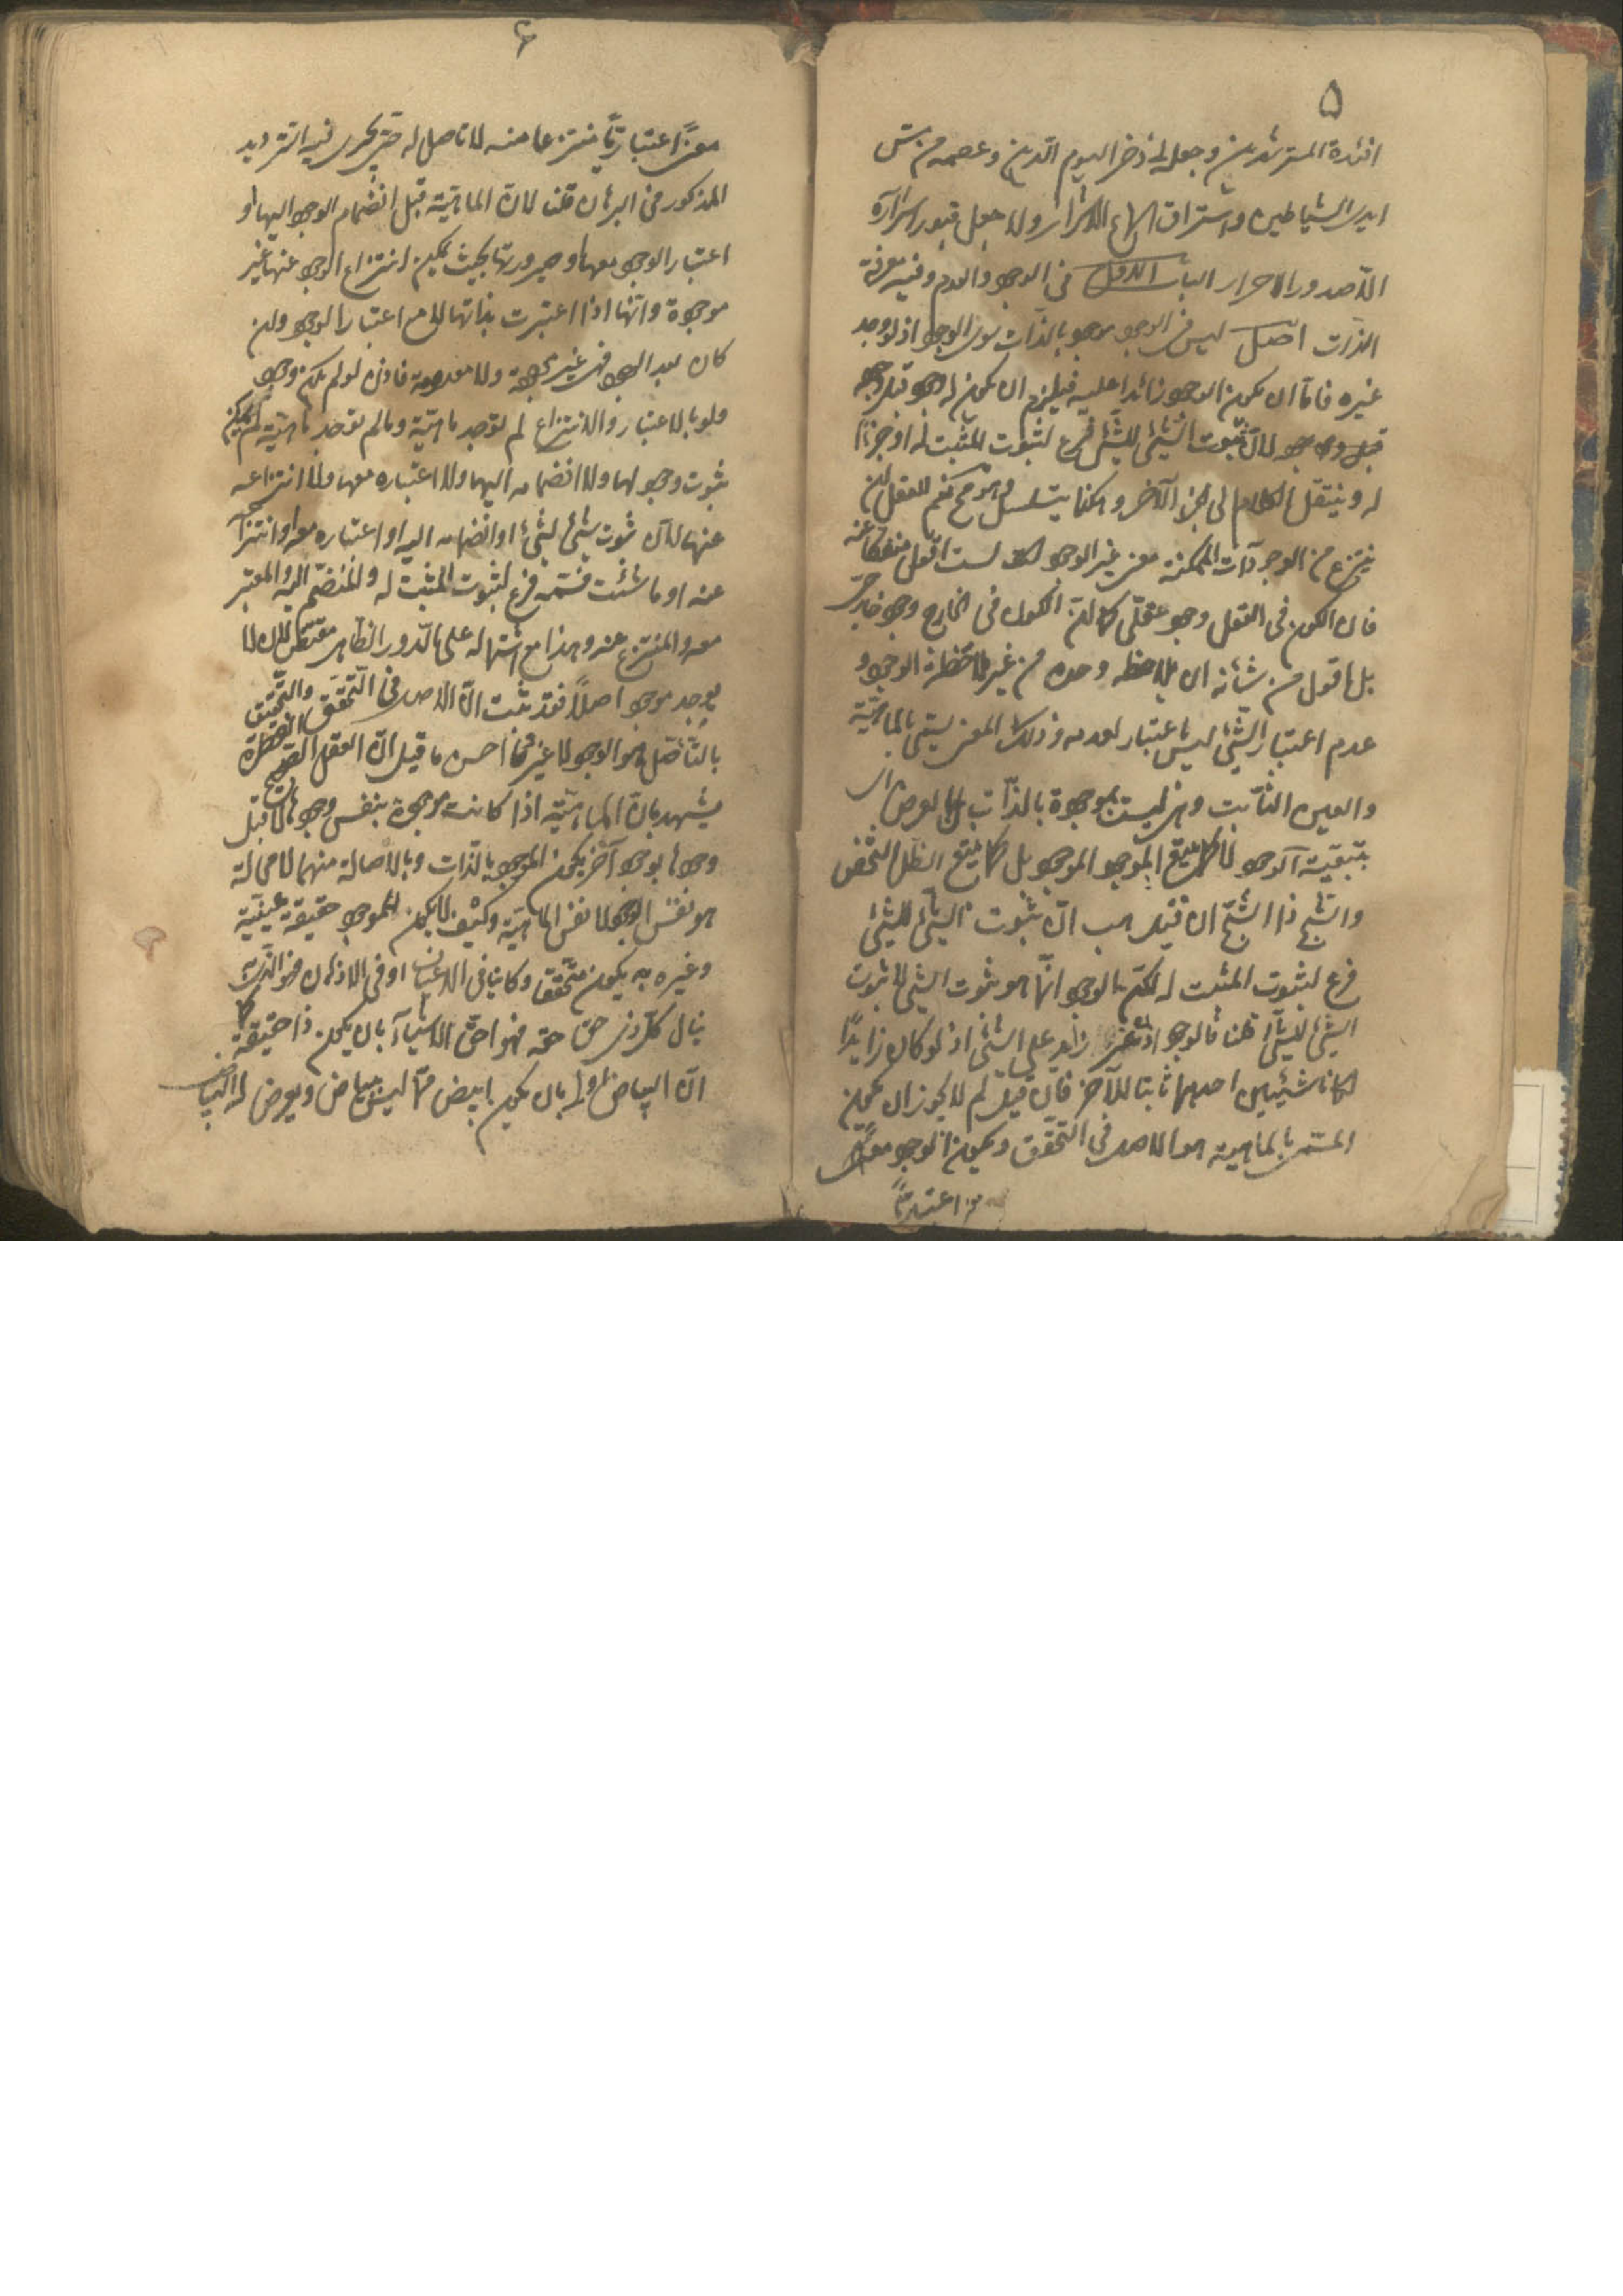 ۵
افئدة المسترشدين وجعل لى ذخرا ليوم الدّين وعصمه من مسّ
ايدى الشياطين واستراق اسماع الاشرار ولا جعل قبور اسراره
الّا صدور الاحرار الباب الاول فى الوجود والعدم وفيه معرفة
الذات اصل ليس فى الوجود موجود بالذّات سوى الوجود اذ لو وجد
غيره فامّا ان يكون الوجود زائدا عليه فيلزم ان يكون له وجود قبل وجوده
لانّ ثبوت الشىء للشىء فرع لثبوت المثبت له او جزءًا
له وينتقل الكلام الى الجزء الآخر وهكذا يتسلسل وهو مح نعم للعقل ان
ينتزع من الوجودات الممكنة معنى غير الوجود لست اقول منفكّا عنه
فان الكون فى العقل وجود عقلى كما انّ الكون فى الخارج وجود خارجى
بل اقول من شأنه ان يلاحظه وحده من غير ملاحظة الوجود و
عدم اعتبار الشىء ليس باعتبار لعدمه وذلك المعنى يسمّى بالماهيّة
والعين الثّابت وهى ليست بموجودة بالذّات بل بالعرض اى
بتبعيّة الوجود لا كما يتبع الموجود الموجود بل كما يتبع الظّل الشخص
والشّبح ذا الشّبح ان قيل هب انّ ثبوت الشّىء للشىء
فرع لثبوت المثبت له لكنّ الوجود انّما هو ثبوت الشىء لا ثبوت
الشىء للشىء قلنا فالوجود اذن غير زايد على الشىء اذ لو كان زايدًا
لكانا شيئين احدهما ثابتا للآخر فان قيل لم لا يجوز ان يكون
المسمّى بالماهية هو الاصل فى التحقّق ويكون الوجود معنى
اعتباريّا
۶
معنًى اعتباريّا منتزعا منه لا تاصل له حتى يجرى فيه الترديد
المذكور فى البرهان قلنا لانّ الماهيّة قبل انضمام الوجود اليها او
اعتبار الوجود معها او صيرورتها بحيث يمكن انتزاع الوجود عنها غير
موجودة وانّها اذا اعتبرت بذاتها لا مع اعتبار الوجود وان
كان بعد الوجود فهى غير موجودة ولا معدومة فاذن لو لم يكن وجود
ولو بالاعتبار والانتزاع لم توجد ماهيّة وما لم توجد ماهيّة لم يمكن
ثبوت وجود لها ولا انضمامه اليها ولا اعتباره معها ولا انتزاعه
عنها لانّ ثبوت شىء لشىء او انضمامه اليه او اعتباره معه او انتزاعه
عنه او ما شئت فسمّه فرع لثبوت المثبت له والمنضمّ اليه والمعتبر
معه والمنتزع عنه وهذا مع اشتماله على الدّور الظاهر مقتض لان لا
يوجد موجود اصلًا فقد ثبت انّ الاصل فى التّحقق والحقيق
بالتّأصّل هو الوجود لا غير فما احسن ما قيل انّ العقل الصحيح الفطرة
يشهد بانّ الماهيّة اذا كانت موجودة بنفس وجودها لا قبل
وجودها بوجود آخر يكون الموجود بالذّات وبالاصالة منهما لا محالة
هو نفس الوجود لا نفس الماهيّة وكيف لا يكون للموجود حقيقة عينيّة
وغيره به يكون متحققا وكاينا فى الاعيان او فى الاذهان فهو الّذى به
ينال كلّ ذى حق حقه فهو احقّ الاشياء بان يكون ذا حقيقة كما
انّ البياض اولى بان يكون ابيض ممّا ليس ببياض ويعرض له البياض